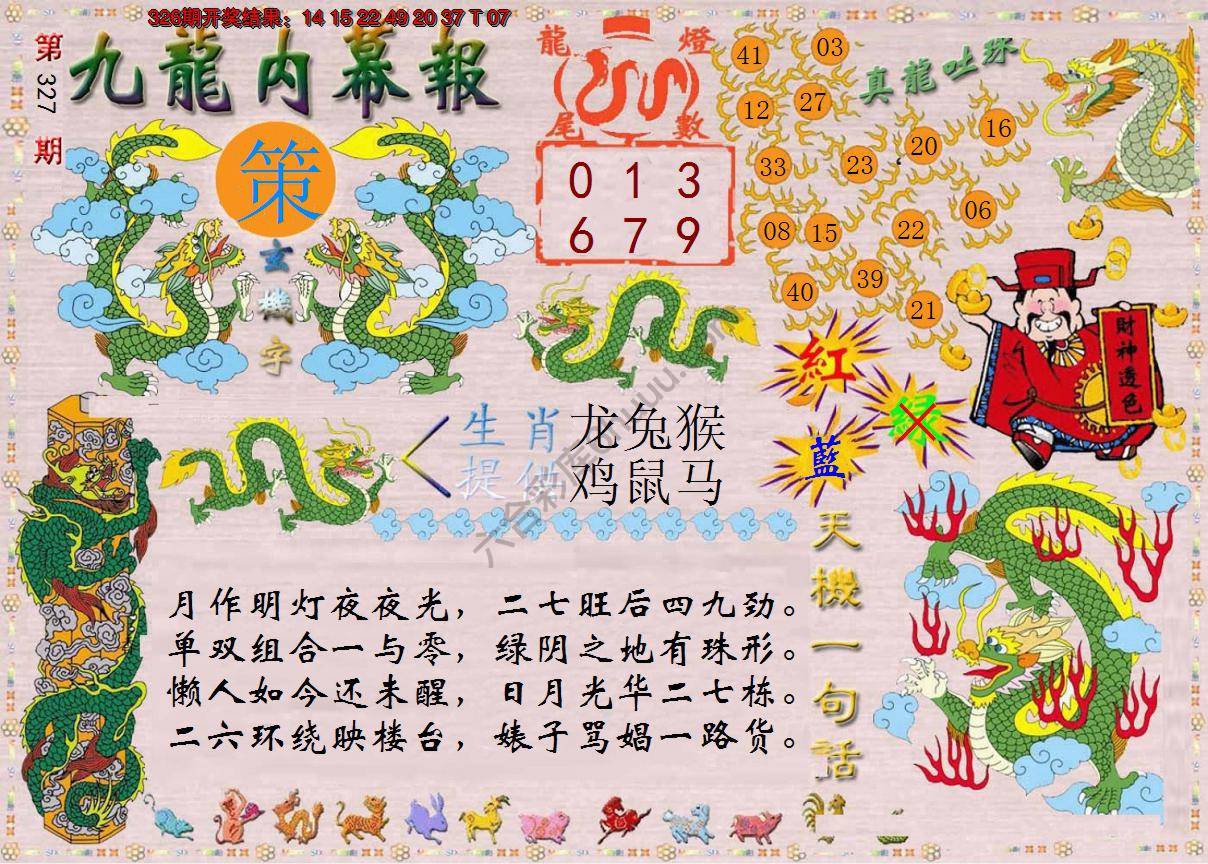 326期开奖结果：14 15 22 49 20 37 T 07
第327期
九龍內幕報
策
玄機字
龍燈
尾數
0 1 3
6 7 9
真龍吐珠
41
03
12
27
33
23
20
16
08
15
22
06
40
39
21
財神透色
紅
绿
藍
生肖 龙兔猴
提供 鸡鼠马
天機一句話
月作明灯夜夜光，二七旺后四九劲。
单双组合一与零，绿阴之地有珠形。
懒人如今还未醒，日月光华二七栋。
二六环绕映楼台，婊子骂娼一路货。